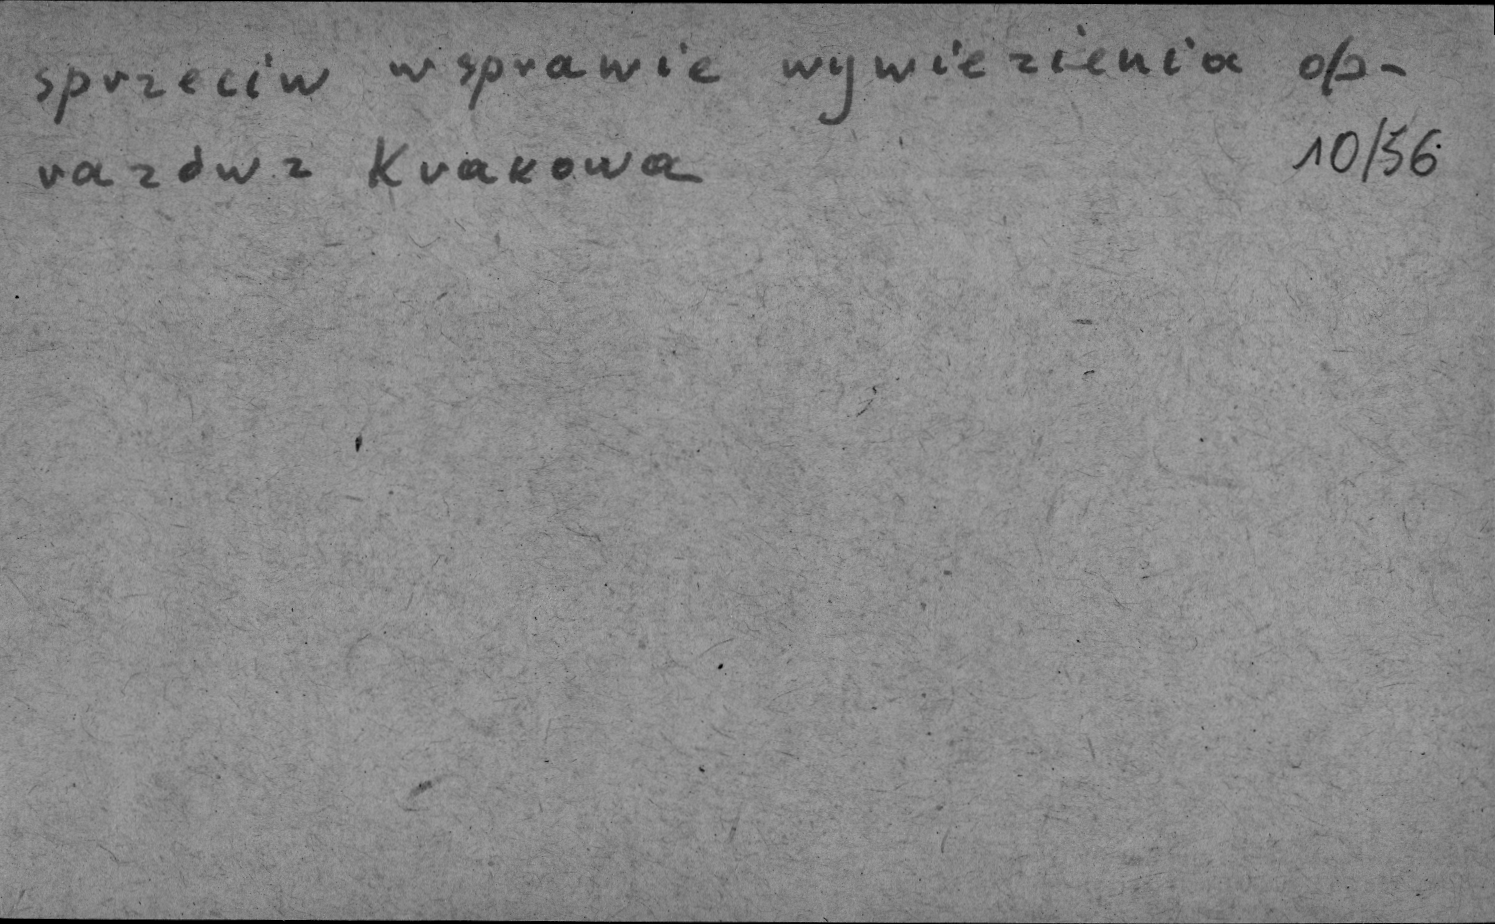 sprzeciw w sprawie wywiezienia ob-
razów z Krakowa 10/56